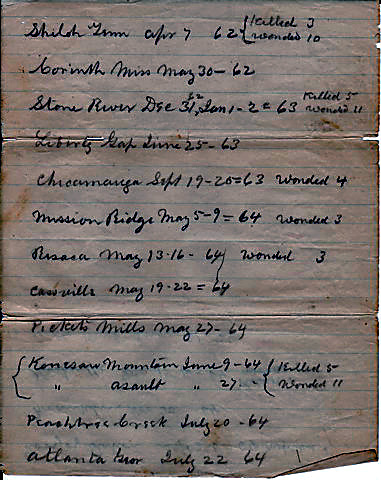 Shiloh Tenn Apr 7 62 { Killed 3
Wonded 10
Corinth Miss May 30 - 62
Stone River Dec 31, 62 Jan 1 - 2 = 63 Killed 5
Wonded 11
Liberty Gap June 25 - 63
Chicamauga Sept 19 - 20 = 63 Wonded 4
Mission Ridge May 5 - 9 = 64 Wonded 3
Resaca May 13 - 16 - 64 } Wonded 3
Cassville May 19 - 22 = 64
Pickets Mills May 27 - 64
{ Kenesaw Mountain June 9 - 64 { Killed 5
" asault " 27 - Wonded 11
Peachtree Creek July 20 - 64
Atlanta July 22 64